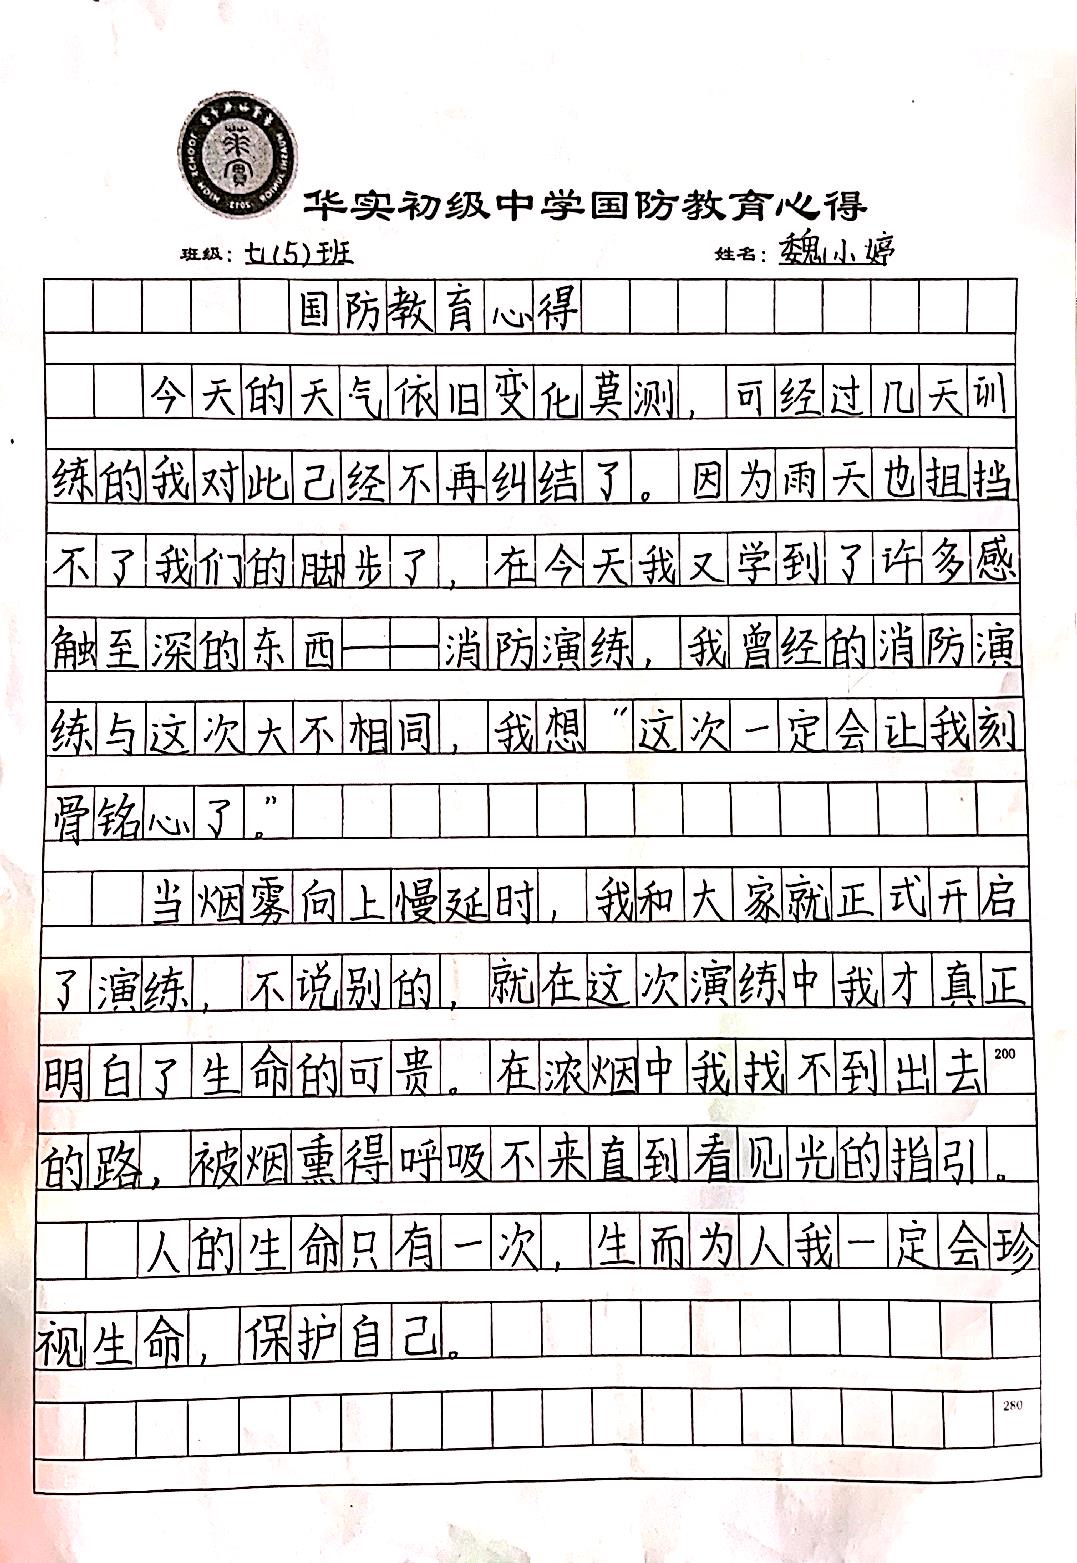 华实初级中学国防教育心得
班级：七(5)班 姓名：魏小婷
国防教育心得
今天的天气依旧变化莫测，可经过几天训
练的我对此己经不再纠结了。因为雨天也担挡
不了我们的脚步了，在今天我又学到了许多感
触至深的东西——消防演练，我曾经的消防演
练与这次大不相同，我想“这次一定会让我刻
骨铭心了。”
当烟雾向上慢延时，我和大家就正式开启
了演练，不说别的，就在这次演练中我才真正
明白了生命的可贵。在浓烟中我找不到出去
200
的路，被烟熏得呼吸不来直到看见光的指引。
人的生命只有一次，生而为人我一定会珍
视生命，保护自己。
280